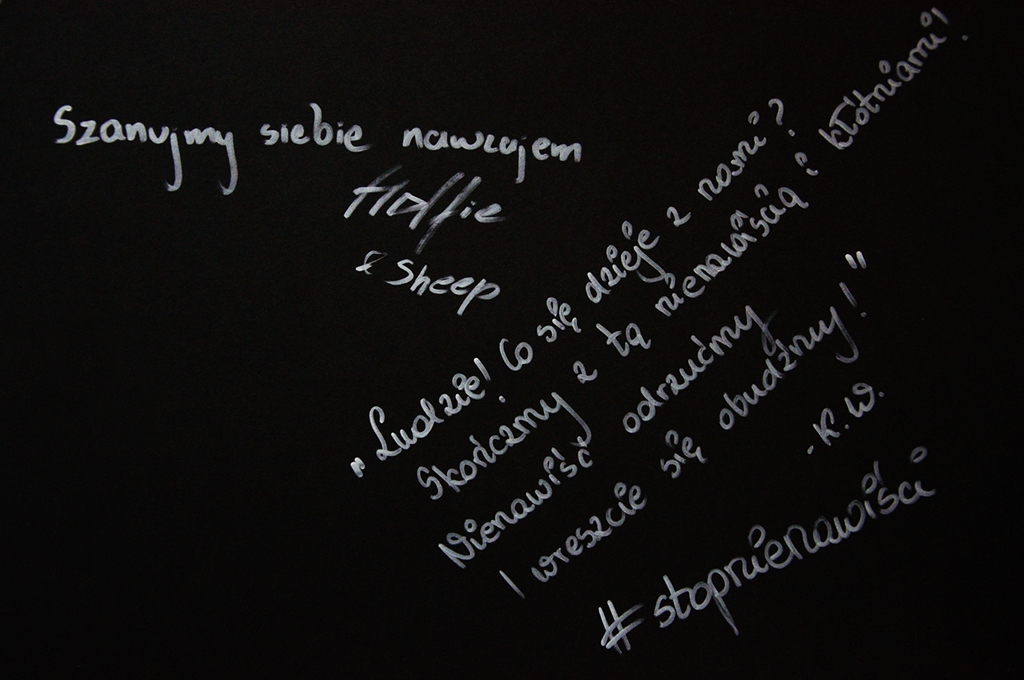 Szanujmy siebie nawzajem
Halfie
& Sheep
„Ludzie! Co się dzieje z nami?
Skończmy z tą nienawiścią i kłótniami!
Nienawiść odrzućmy
I wreszcie się obudźmy!"
- K.W.
#stopnienawiści